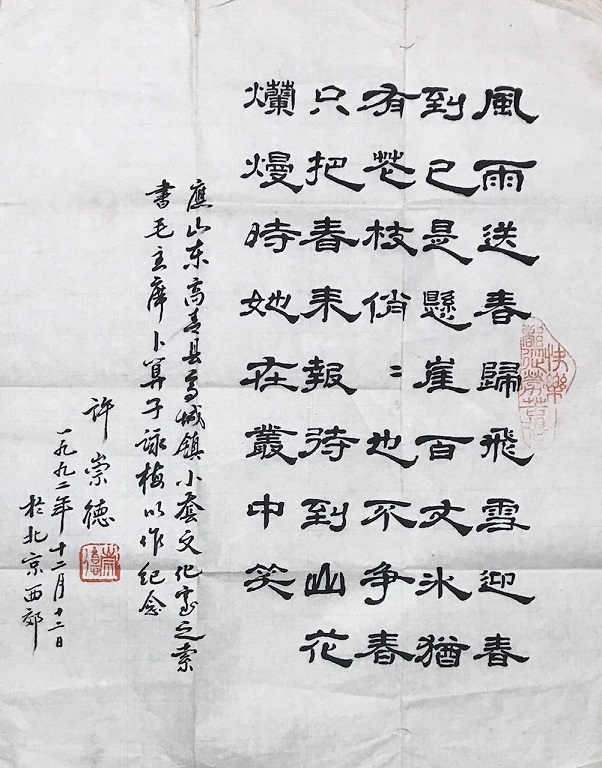 風雨送春歸飛雪迎春
到已是懸崖百丈冰猶
有花枝俏〻也不争春
只把春来報待到山花
爛熳時她在叢中笑
應山东高青县高城镇小套文化室之索
書毛主席卜算子詠梅以作纪念
许崇德
崇德
一九九二年十二月十二日
於北京西郊